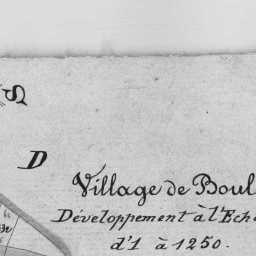 S
D
Village de Boul
Développement à l'Ech
d'1 à 1250.